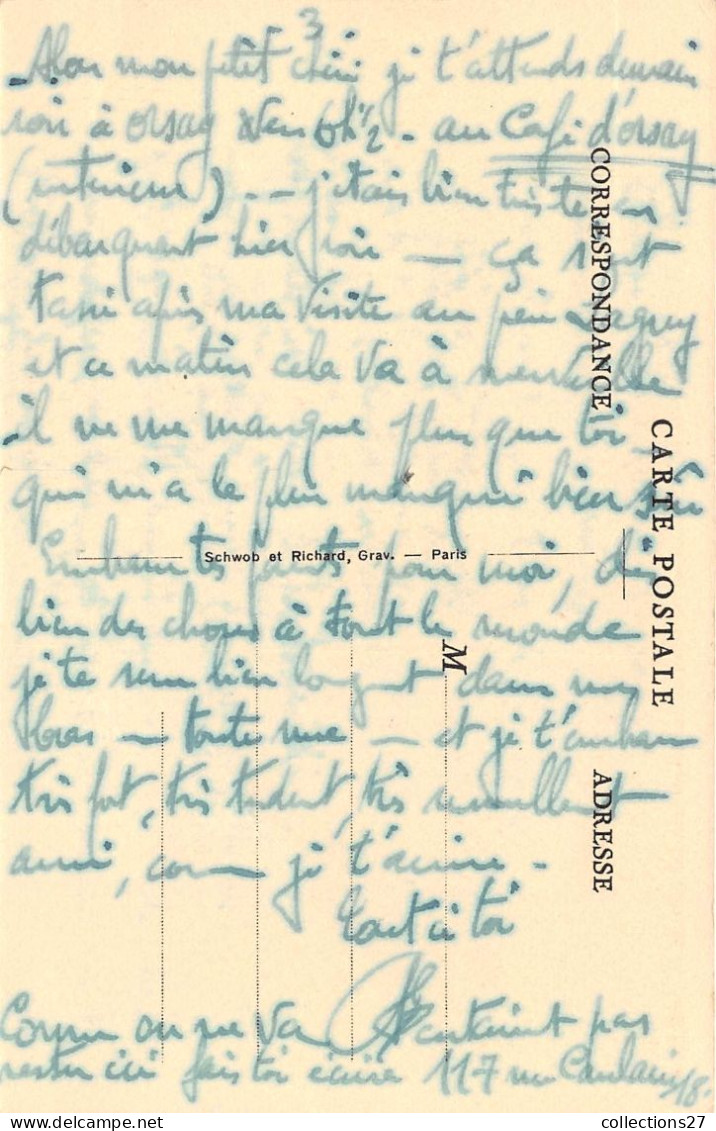 3
Alors mon petit chéri je t'attends demain
soir à Orsay vers 6h 1/2 - au Café d'Orsay
(intérieur) -- j'étais bien triste en
débarquant hier soir — ça s'est
tassé après ma visite au père
et ce matin cela va à merveille
il ne me manque plus que toi
qui m'a le plus manqué bien sûr
Embrasse tes parents pour moi, dis
bien des choses à tout le monde
je te serre bien longt dans mes
bras — toute nue — et je t'embrasse
très fort, très tendrt, très
aussi, comme je t'aime -
Tout à toi
Comme on ne va certainement pas
rester ici fais toi écrire 117 rue Caulaincourt 18.
CORRESPONDANCE
CARTE POSTALE
ADRESSE
M
Schwob et Richard, Grav. — Paris
collections27